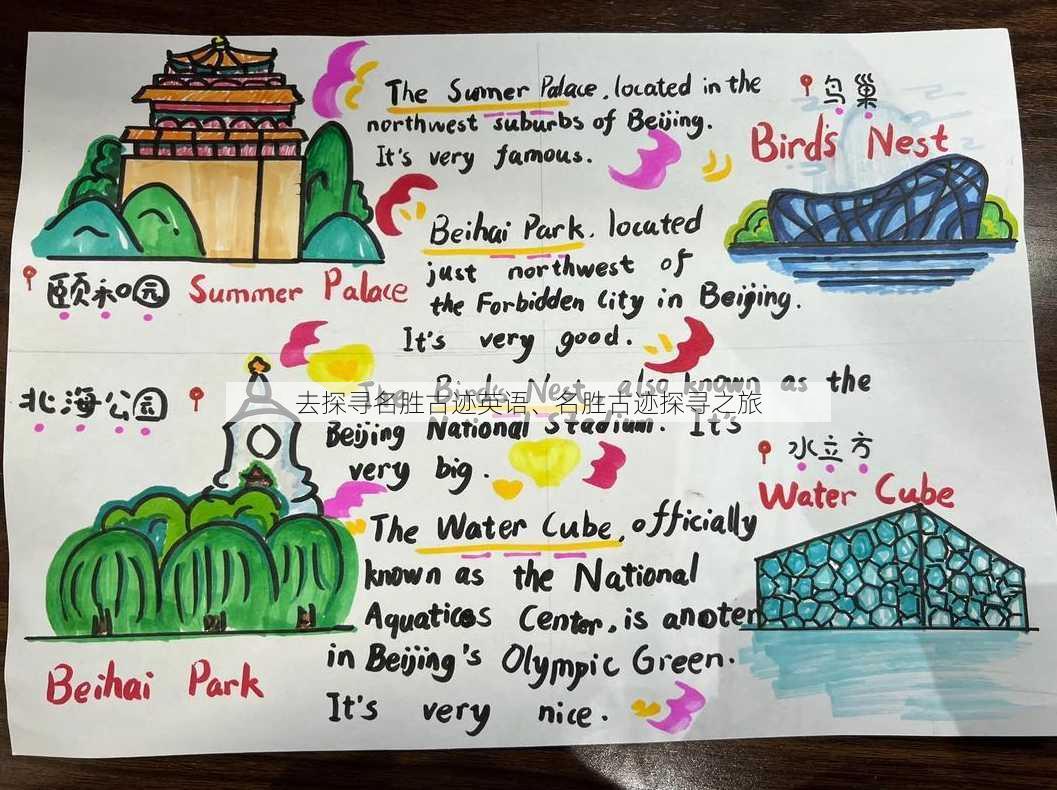 The Sumner Palace, located in the
northwest suburbs of Beijing.
It's very famous.
鸟巢
Bird's Nest
Beihai Park, located
just northwest of
the Forbidden City in Beijing.
It's very good.
颐和园 Summer Palace
北海公园
The Bird's Nest also known as the
去探寻名胜古迹英语、名胜古迹探寻之旅
Beijing National Stadium. It's
very big.
水立方
Water Cube
The Water Cube, officially
known as the National
Aquatics Center, is anoter
in Beijing's Olympic Green.
It's very nice.
Beihai Park